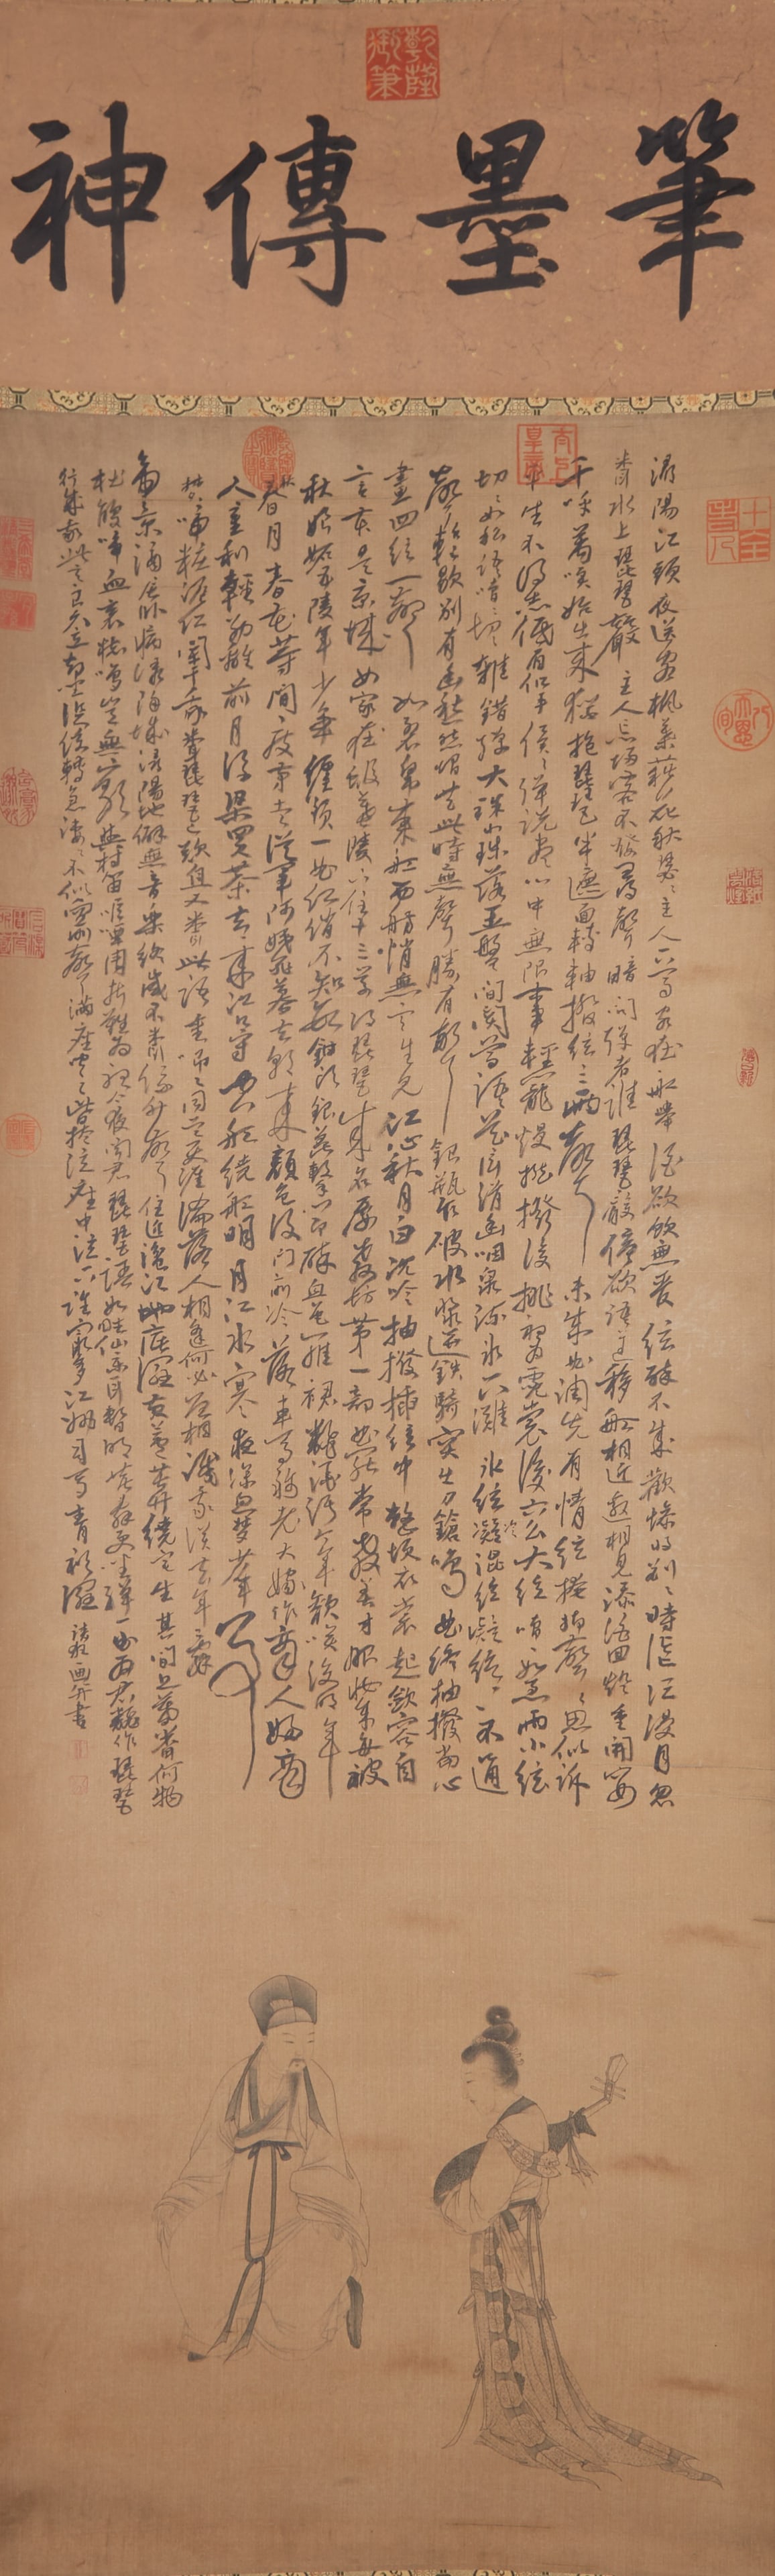 乾隆御筆
筆墨傳神
潯陽江頭夜送客楓葉荻花秋瑟〻主人下馬客在船舉酒欲飲無管絃醉不成歡慘將別〻時茫〻江浸月忽
聞水上琵琶聲主人忘歸客不發尋聲暗問彈者誰琵琶聲停欲語遲移船相近邀相見添酒回燈重開宴
千呼萬喚始出來猶抱琵琶半遮面轉軸撥絃三兩聲未成曲調先有情絃〻掩抑聲〻思似訴
平生不得志低眉信手續〻彈說盡心中無限事輕攏慢撚撥復挑初為霓裳後六么大絃嘈〻如急雨小絃
切〻如私語嘈〻切〻雜錯彈大珠小珠落玉盤間關鶯語花底滑幽咽泉流氷下灘氷絃凝絕〻不通
聲暫歇別有幽愁此時無聲勝有聲銀瓶乍破水漿迸鐵騎突出刀鎗鳴曲終抽撥當心
畫四絃一聲如裂帛東船西舫悄無言唯見江心秋月白沉吟抽撥插絃中整頓衣裳起斂容自
言本是京城女家在蝦蟇陵下住十三學得琵琶成名屬教坊第一部曲罷常教善才服妝成每被
秋娘妬五陵年少爭纏頭一曲紅綃不知數鈿頭銀篦擊節碎血色羅裙翻酒污今年歡笑復明年
秋月春花等閒度弟走從軍阿姨死暮去朝來顏色故門前冷落車馬稀老大嫁作商人婦商
人重利輕別離前月浮梁買茶去〻來江口守空船繞船明月江水寒夜深忽夢少年事
夢啼粧淚紅闌干我聞琵琶已歎息又聞此語重唧〻同是天涯淪落人相逢何必曾相識我從去年辭
帝京謫居臥病潯陽城潯陽地僻無音樂終歲不聞絲竹聲住近湓江地低濕黃蘆苦竹繞宅生其間旦暮聞何物
杜鵑啼血哀猿鳴豈無山歌與村笛嘔啞嘲哳難為聽今夜聞君琵琶語如聽仙樂耳暫明莫辭更坐彈一曲為君翻作琵琶
行感我此言良久立却坐促絃絃轉急淒〻不似向前聲滿座聞之皆掩泣座中泣下誰最多江州司馬青衫濕 畫并書